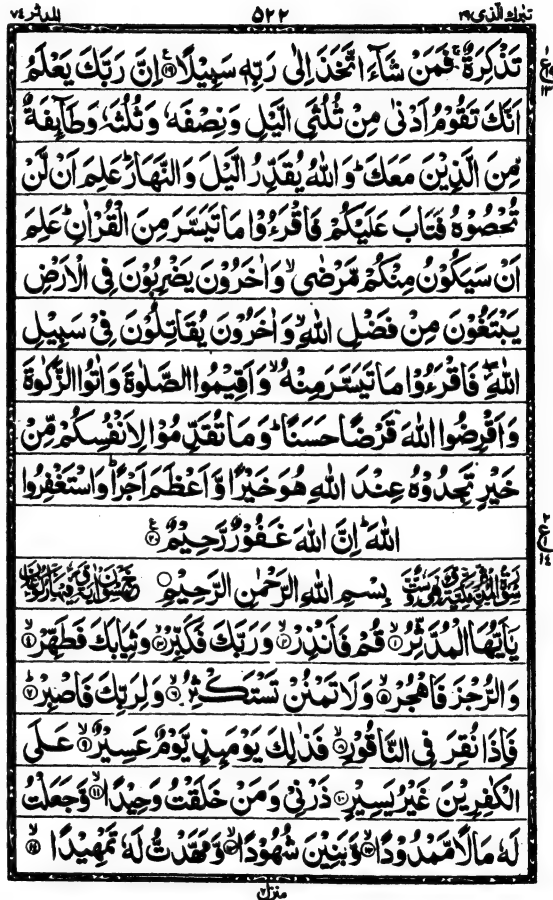 تبٰرك الذی ۲۹ ۵۲۲ المدثر ۷۴
تَذْكِرَةٌ ۚ فَمَنْ شَآءَ اتَّخَذَ اِلٰى رَبِّهٖ سَبِيْلًا ۝۱۹ اِنَّ رَبَّكَ يَعْلَمُ
اَنَّكَ تَقُوْمُ اَدْنٰى مِنْ ثُلُثَيِ الَّيْلِ وَنِصْفَهٗ وَثُلُثَهٗ وَطَآئِفَةٌ
مِّنَ الَّذِيْنَ مَعَكَ ؕ وَاللّٰهُ يُقَدِّرُ الَّيْلَ وَالنَّهَارَ ؕ عَلِمَ اَنْ لَّنْ
تُحْصُوْهُ فَتَابَ عَلَيْكُمْ فَاقْرَءُوْا مَا تَيَسَّرَ مِنَ الْقُرْاٰنِ ؕ عَلِمَ
اَنْ سَيَكُوْنُ مِنْكُمْ مَّرْضٰى ۙ وَاٰخَرُوْنَ يَضْرِبُوْنَ فِى الْاَرْضِ
يَبْتَغُوْنَ مِنْ فَضْلِ اللّٰهِ ۙ وَاٰخَرُوْنَ يُقَاتِلُوْنَ فِىْ سَبِيْلِ
اللّٰهِ ۖ فَاقْرَءُوْا مَا تَيَسَّرَ مِنْهُ ۙ وَاَقِيْمُوا الصَّلٰوةَ وَاٰتُوا الزَّكٰوةَ
وَاَقْرِضُوا اللّٰهَ قَرْضًا حَسَنًا ؕ وَمَا تُقَدِّمُوْا لِاَنْفُسِكُمْ مِّنْ
خَيْرٍ تَجِدُوْهُ عِنْدَ اللّٰهِ هُوَ خَيْرًا وَّاَعْظَمَ اَجْرًا ؕ وَاسْتَغْفِرُوا
اللّٰهَ ؕ اِنَّ اللّٰهَ غَفُوْرٌ رَّحِيْمٌ ۝۲۰
بِسْمِ اللّٰهِ الرَّحْمٰنِ الرَّحِيْمِ
يٰۤاَيُّهَا الْمُدَّثِّرُ ۝۱ قُمْ فَاَنْذِرْ ۝۲ وَرَبَّكَ فَكَبِّرْ ۝۳ وَثِيَابَكَ فَطَهِّرْ ۝۴
وَالرُّجْزَ فَاهْجُرْ ۝۵ وَلَا تَمْنُنْ تَسْتَكْثِرُ ۝۶ وَلِرَبِّكَ فَاصْبِرْ ۝۷
فَاِذَا نُقِرَ فِى النَّاقُوْرِ ۝۸ فَذٰلِكَ يَوْمَئِذٍ يَّوْمٌ عَسِيْرٌ ۝۹ عَلَى
الْكٰفِرِيْنَ غَيْرُ يَسِيْرٍ ۝۱۰ ذَرْنِىْ وَمَنْ خَلَقْتُ وَحِيْدًا ۝۱۱ وَّجَعَلْتُ
لَهٗ مَالًا مَّمْدُوْدًا ۝۱۲ وَّبَنِيْنَ شُهُوْدًا ۝۱۳ وَّمَهَّدْتُّ لَهٗ تَمْهِيْدًا ۝۱۴
منزل ۷